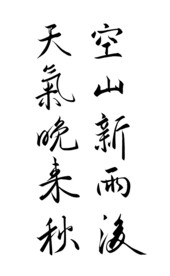 空山新雨後
天氣晚来秋